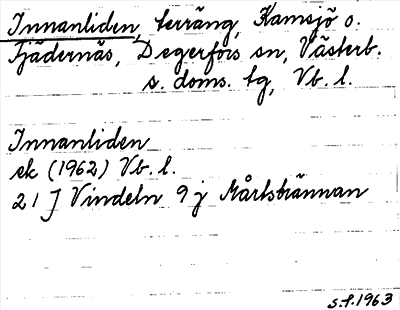 Innanliden, terräng, Kamsjö o.
Fjädernäs, Degerfors sn, Västerb.
s. doms. tg, Vb. l.
Innanliden
ek (1962) Vb. l.
21 J Vindeln 9 j Mårtsbrännan
s.f. 1963